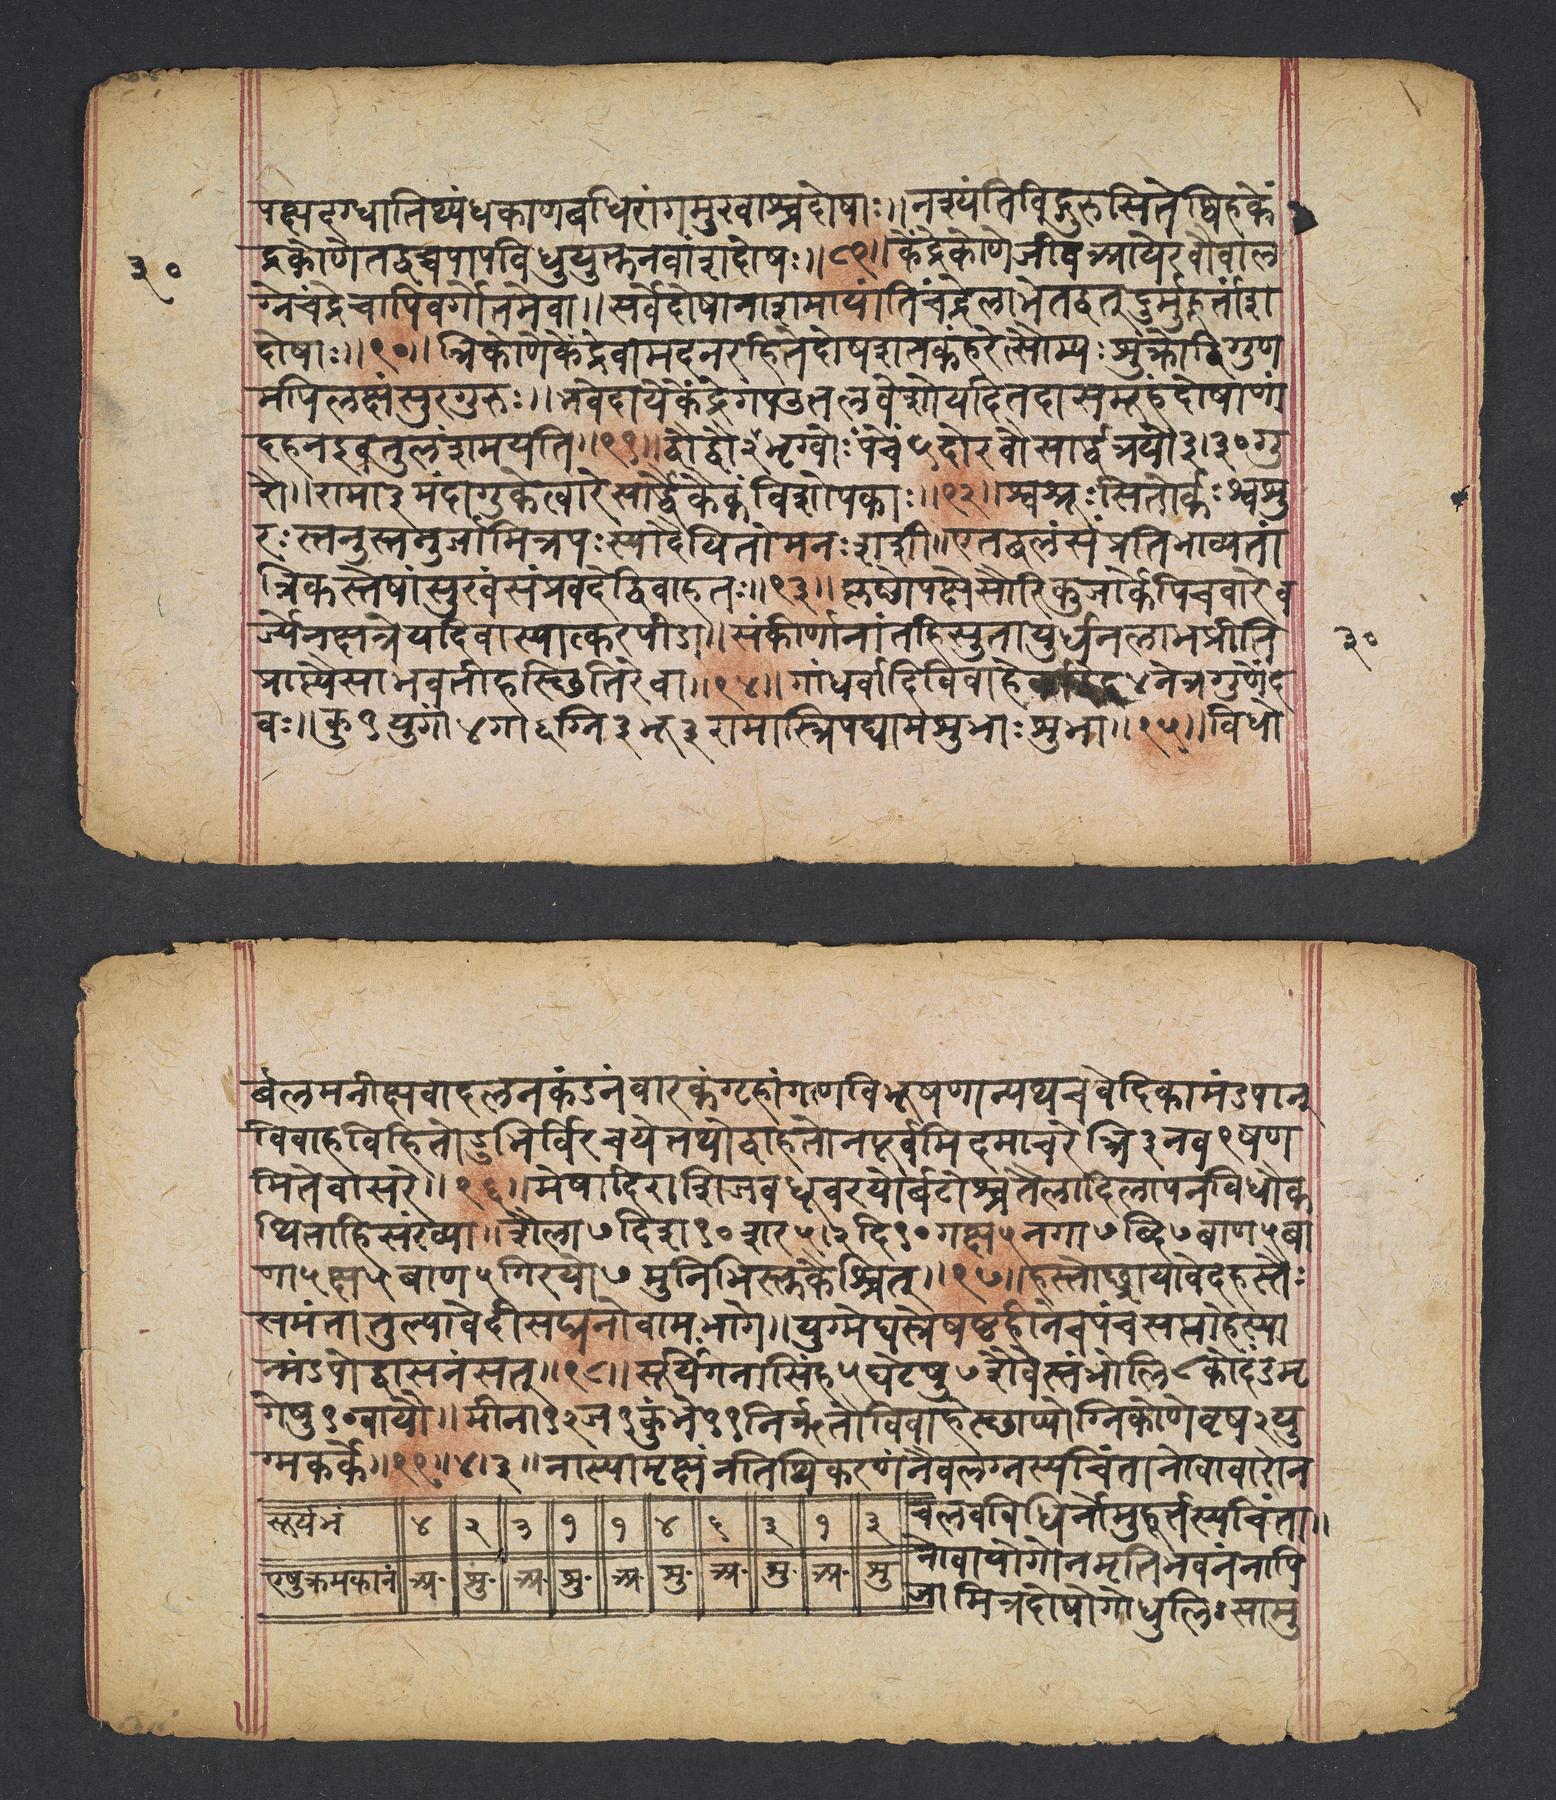 पक्षदग्धातिथ्यंधकाणबधिरांगमुखाश्चदोषाः॥नश्यंतिविद्गुरुसितेष्विहकें
३०
द्रकोणेतद्वच्चपापविधुयुक्तनवांशदोषः॥८९॥केंद्रेकोणेजीवआयेरवौवाल
ग्नेचंद्रेवापिवर्गोत्तमेवा॥सर्वेदोषानाशमायांतिचंद्रेलाभेतद्वत्दुर्मुहूर्तांश
दोषाः॥९०॥त्रिकोणेकेंद्रेवामदनरहितेदोषशतकंहरेत्सौम्यःशुक्रोद्विगुण
मपिलक्षंसुरगुरुः॥भवेदायेकेंद्रेगपउतलवेशोयदितदासमूहंदोषाणां
दहनइवतूलंशमयति॥९१॥द्वौद्वौ२भृग्वोःपंचें५दोरवौसार्द्धत्रयो३।३०गु
रौ॥रामा३मंदागुकेत्वारेसार्द्धैकैकंविशोपकाः॥९२॥श्वश्रूःसितोर्कःश्वशु
रःस्तनुस्तनुर्जामित्रपःस्यादैयितोमनःशशी॥एतद्वलंसंप्रतिभाव्यतां
त्रिकस्तेषांसुखंसंप्रवदेद्विवाहतः॥९३॥कृष्णेपक्षेसौरिकुजार्केपिचवारेव
र्ज्येनक्षत्रेयदिवास्यात्करपीडा॥संकीर्णानांतर्हिसुतायुर्धनलाभप्रीति
३०
प्राप्त्यैसाभवतीहस्थितिरेवा॥९४॥गांधर्वादिविवाहे४नेत्रगुणेंद
वः॥कु१युगां४गा६ग्नि३भू३रामास्त्रिपद्यामशुभाःशुभा॥९५॥विधो
र्बलमवीक्षवादलनकंडनंवारकंगृहांगणविभूषणान्यथचवेदिकामंडपान्
विवाहविहितोडुभिर्विरचयेत्तथोद्वाहतोनपूर्वमिदमाचरेत्त्रि३नव९षण
मितेवासरे॥९६॥मेषादिराशिजवधूवरयोर्बटोश्चतैलादिलापनविधौक
थितात्रहिसंख्या॥शैला७दिशा१०शर५।२दि१०गक्ष५नगा७ब्दि७बाण५बा
णा५क्ष५बाण५गिरयो७मुनिभिस्तुकैश्चित्॥९७॥हस्तोच्छ्रायावेदहस्तैः
समंतातुल्यावेदीसद्मनोवामभागे॥युग्मेघस्रेषष्ठहीनेचपंचसप्ताहेस्या
न्मंडपोद्वासनंसत्॥९८॥सूर्येंगनासिंह५घटेषु७शैवेस्तंभोलि८कोदंडमृ
गेषु१०वायौ॥मीना१२ज१कुंभे११निर्ऋतौविवाहेस्थाप्योग्निकोणेवृष२यु
ग्मकर्के॥९९॥४।३॥नास्यामृक्षंनतिथिकरणंनैवलग्नस्यचिंतानोवावारोन
चलवविधिर्नोमुहूर्त्तस्यचिंता॥
नोवायोगोनमृतिभवनंनापि
जामित्रदोषोगोधूलिःसामु
सूर्यभं ४ २ ३ १ १ ४ ६ ३ १ ३
एषुक्रमकानं अ॰ शु॰ अ॰ शु॰ अ॰ शु॰ अ॰ शु॰ अ॰ शु